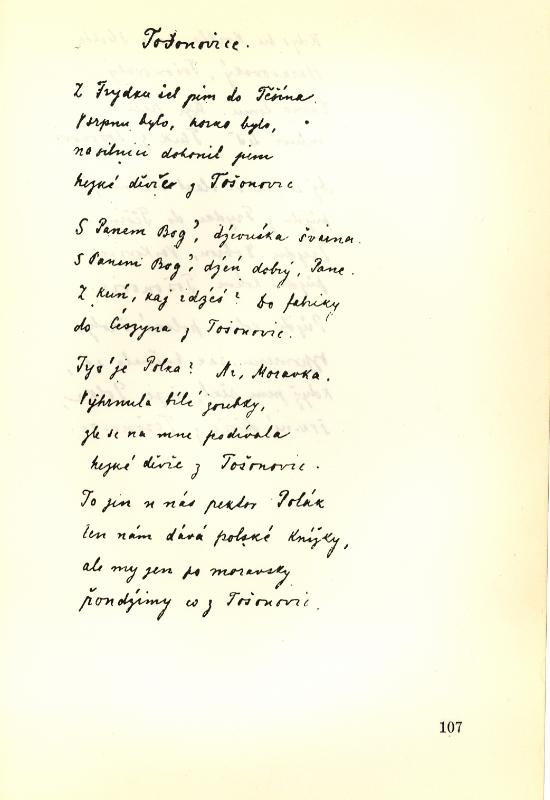 Tošonovice.
Z Frydku šel jsem do Těšína.
V srpnu bylo, horko bylo,
na silnici dohonil jsem
hezké děvče z Tošonovic
S Panem Bog', dźevuśka švarna.
S Panem Bog', dźeń dobrý, Pane.
Z kuń, kaj idźeś? Do fabriky
do Ćeszyna z Tošonovic.
Tyś je Polka? Ni, Moravka.
Vyhrnula bílé zoubky,
zle se na mne podívala
hezké děvče z Tošonovic.
To jen u nás rektor Polák
ten nám dává polské knížky,
ale my jen po moravsky
řondźimy co z Tošonovic.
107